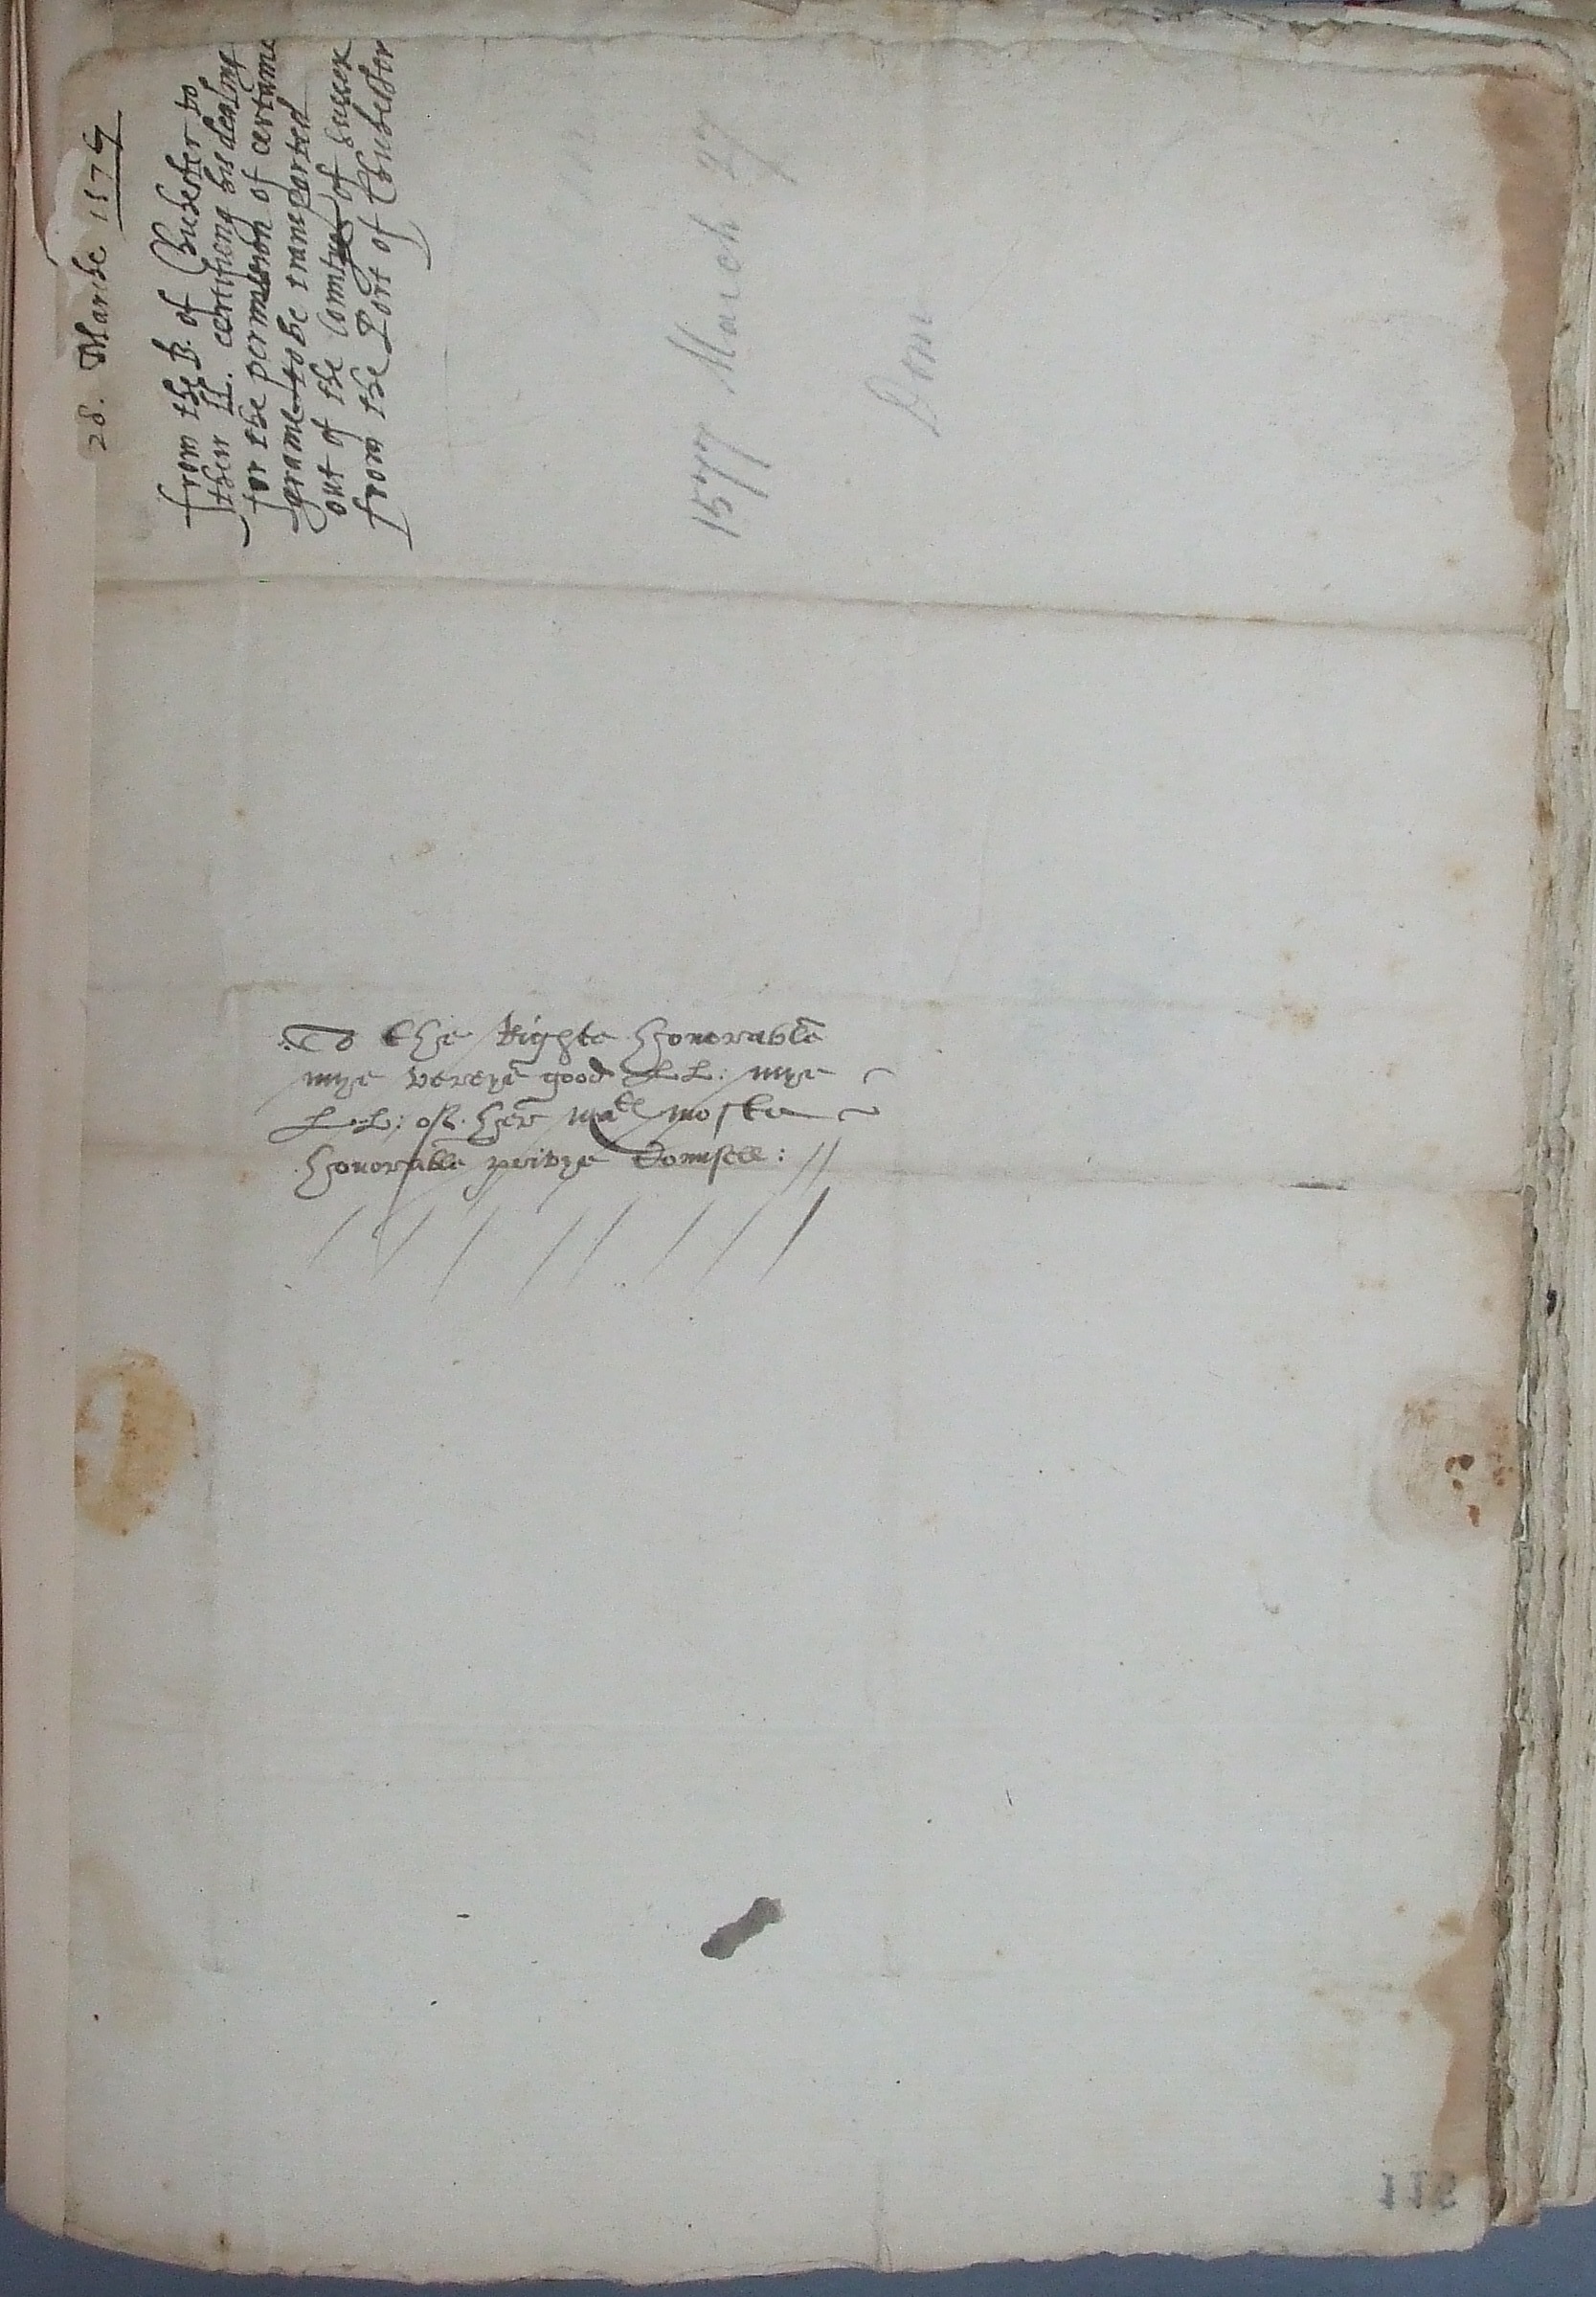 28. Marche 1574
from the B. of Chichester to
their LL. certifieng his dealing
for the permission of certaine
graine to be transported
out of the Countye of Sussex
from the Port of Chichester
1577 March 27
Dom
To the Righte honorable
mye verye good LL: mye
LL: of her Matᵉˢ moste
honorable privye Counsell: